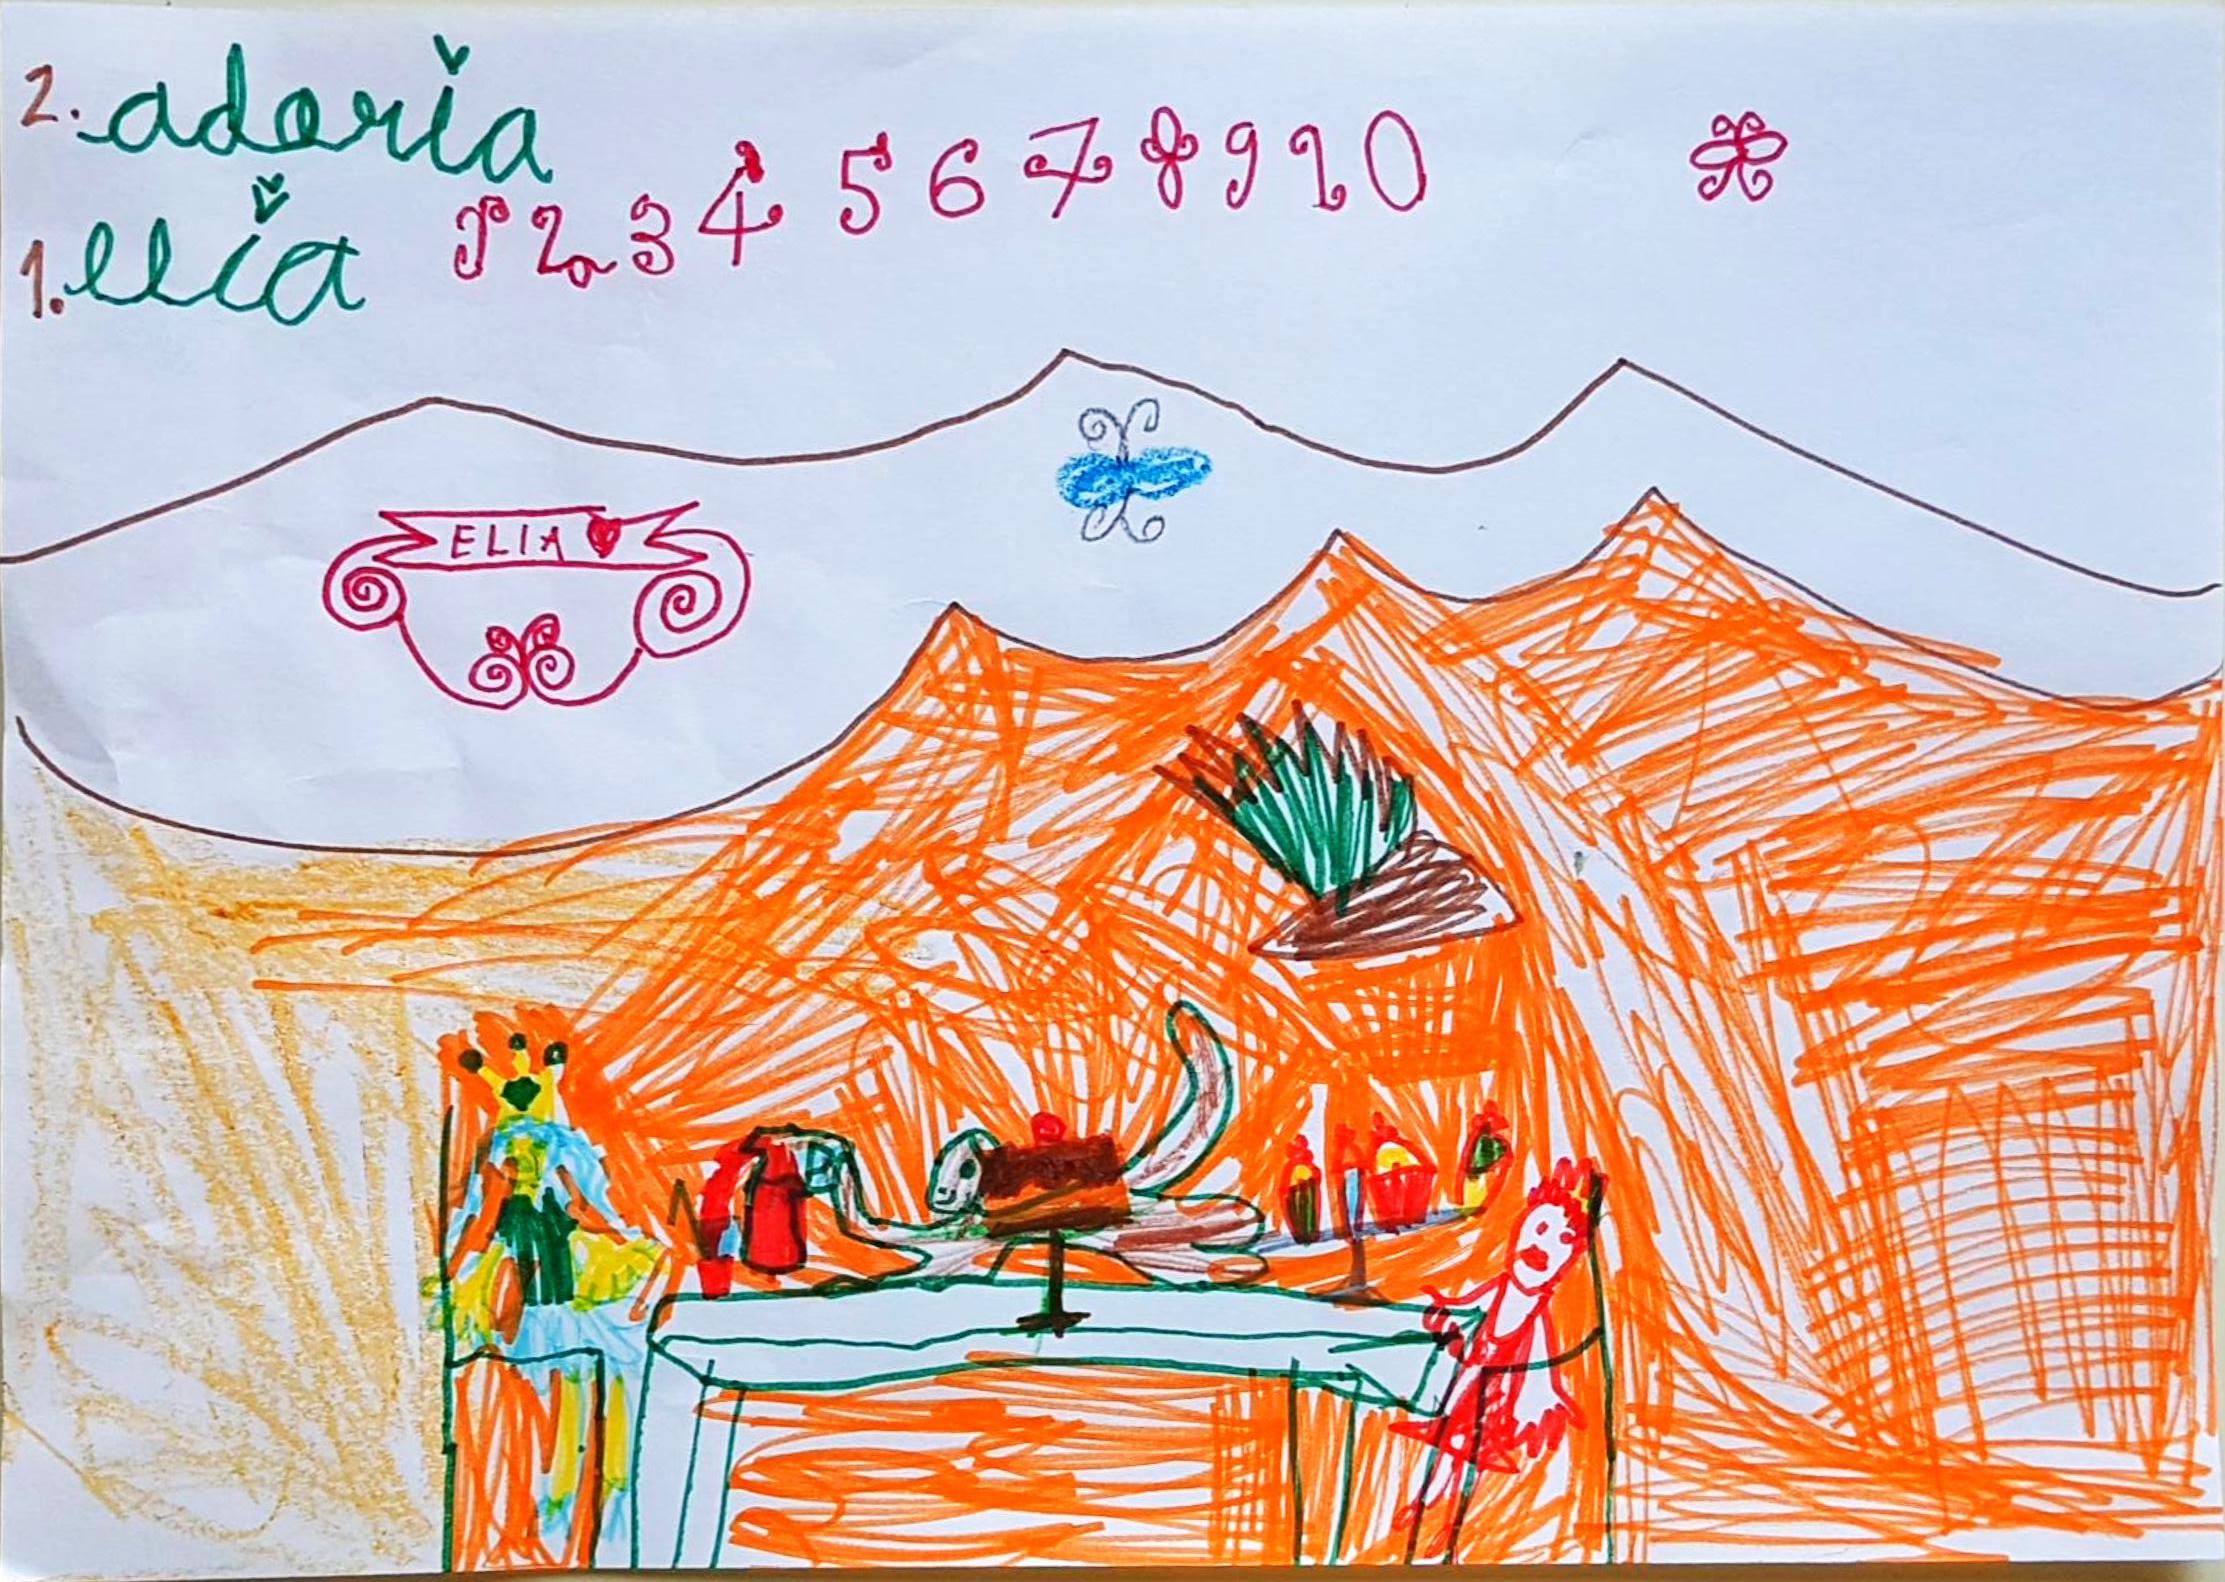 2. adoria
1. elia
1 2 3 4 5 6 7 8 9 10
ELIA